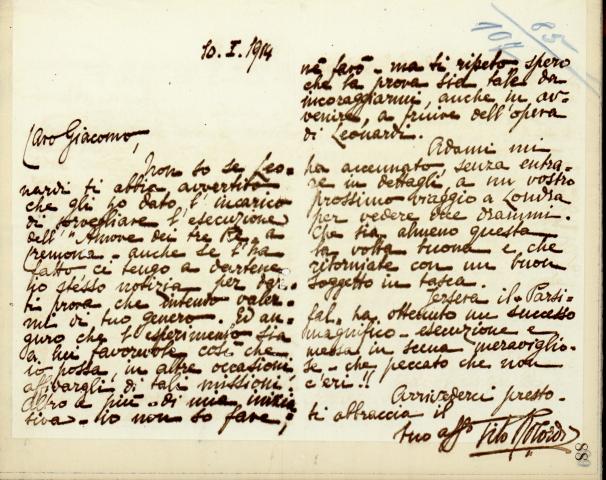 85
107
10. I. 1914
Caro Giacomo,
Non so se Leo=
nardi ti abbia avvertito
che gli ho dato l'incarico
di sorvegliare l'esecuzione
dell'"Amore dei tre Re" a
Cremona - anche se l'ha
fatto, ci tengo a dartene
io stesso notizia per dar=
ti prova che intendo valer=
mi di tuo genero. Ed au=
guro che l'esperimento sia
a lui favorevole così che
io possa, in altre occasioni,
affidargli di tali missioni.
Altro e più - di una inizia
tiva - io non so fare,
nè farò - ma ti ripeto spero
che la prova sia tale da
incoraggiarmi, anche in av=
venire, a fruire dell'opera
di Leonardi.
Adami mi
ha accennato, senza entra=
re in dettagli, a un vostro
prossimo viaggio a Londra
per vedere due drammi.
Che sia almeno questa
la volta buona e che
ritorniate con un buon
soggetto in tasca.
Iersera il "Parsi=
fal" ha ottenuto un successo
magnifico - esecuzione e
messa in scena meraviglio=
se - che peccato che non
c'eri!!
Arrivederci presto -
ti abbraccia il
tuo aff Tito Ricordi
88